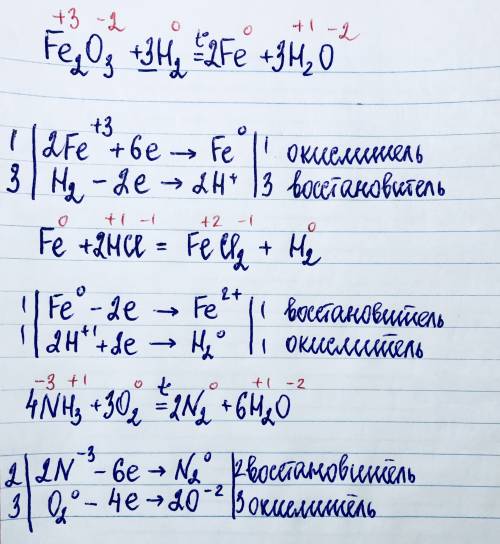 +3 -2 0 0 +1 -2
Fe₂O₃ + 3H₂ t° = 2Fe + 3H₂O
1 | 2Fe⁺³ + 6e → Fe⁰ | 1 окислитель
3 | H₂ - 2e → 2H⁺ | 3 восстановитель
0 +1 -1 +2 -1 0
Fe + 2HCl = FeCl₂ + H₂
1 | Fe⁰ - 2e → Fe²⁺ | 1 восстановитель
1 | 2H⁺¹ + 2e → H₂⁰ | 1 окислитель
-3 +1 0 0 +1 -2
4NH₃ + 3O₂ t = 2N₂ + 6H₂O
2 | 2N⁻³ - 6e → N₂⁰ | 2 восстановитель
3 | O₂⁰ - 4e → 2O⁻² | 3 окислитель